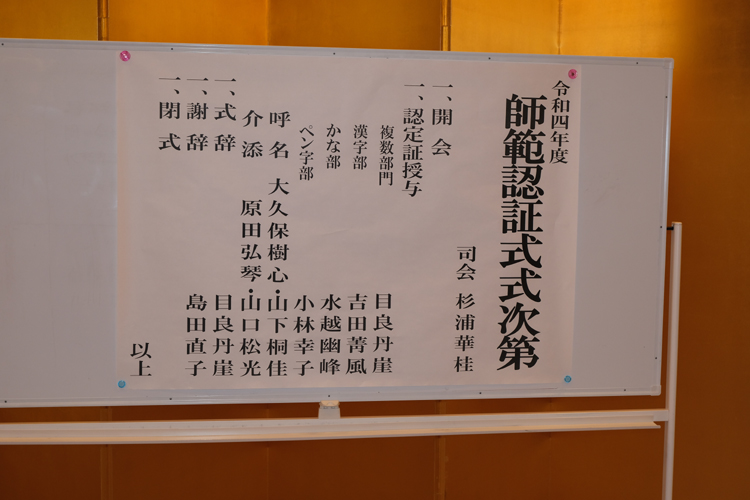 令和四年度
師範認証式式次第
司会 杉浦華桂
一、開会
一、認定証授与
複数部門 目良丹崖
漢字部 吉田菁風
かな部 水越幽峰
ペン字部 小林幸子
呼名 大久保樹心・山下桐佳
介添 原田弘琴・山口松光
一、式辞 目良丹崖
一、謝辞 島田直子
一、閉式
以上